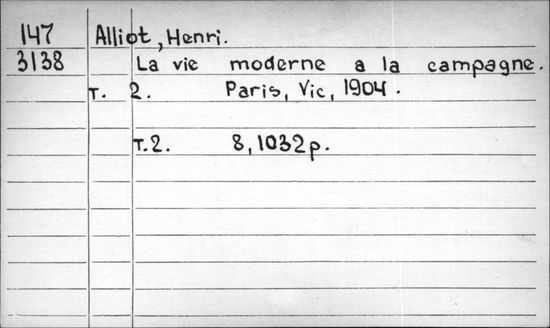 147 Alliot, Henri.
3138 La vie moderne a la campagne.
T. 2. Paris, Vic, 1904.
T.2. 8, 1032p.